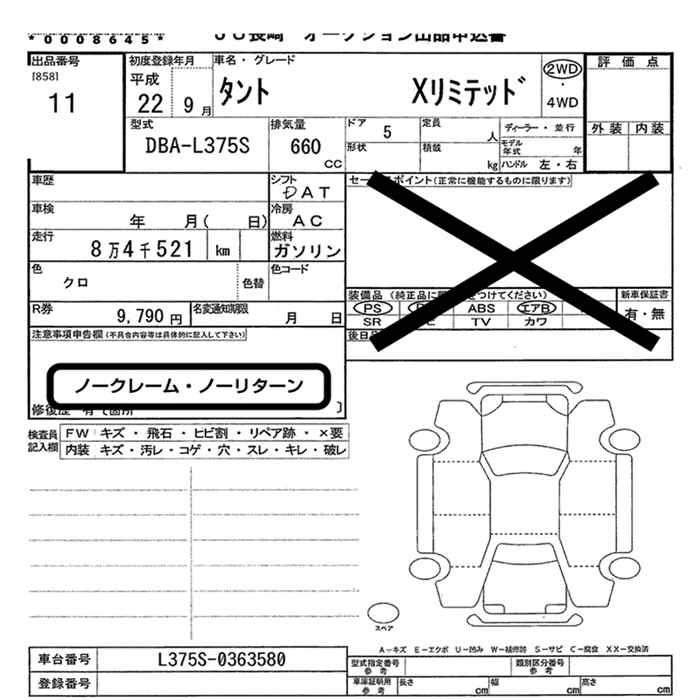 *0008645*
JU長崎 オークション出品申込書
出品番号
[858]
11
初度登録年月
平成
22 9月
車名・グレード
タント Xリミテッド
2WD
・
4WD
評価点
外装 内装
型式
DBA-L375S
排気量
660
CC
ドア
5
定員
人
ディーラー・並行
形状
積載
kg
モデル年式
年
ハンドル 左・右
車歴
シフト
DAT
セー ポイント(正常に機能するものに限ります)
車検
年 月( 日)
冷房
AC
走行
8万4千521 km
燃料
ガソリン
色
クロ
色替
色コード
装備品 (純正品に をつけてください)
新車保証書
PS ABS エアB
SR TV カワ
有・無
R券
9,790円
名変通知期限
月 日
後日
注意事項申告欄(不具合内容等は具体的に記入して下さい)
ノークレーム・ノーリターン
修復歴 有て箇所
検査員
記入欄
FW キズ・飛石・ヒビ割・リペア跡・×要
内装 キズ・汚レ・コゲ・穴・スレ・キレ・破レ
スペア
A-キズ E-エクボ U-凹み W-補修跡 S-サビ C-腐食 XX-交換済
車台番号
L375S-0363580
登録番号
型式指定番号
参考
類別区分番号
参考
車庫証明用
参考
長さ
cm
幅
cm
高さ
cm